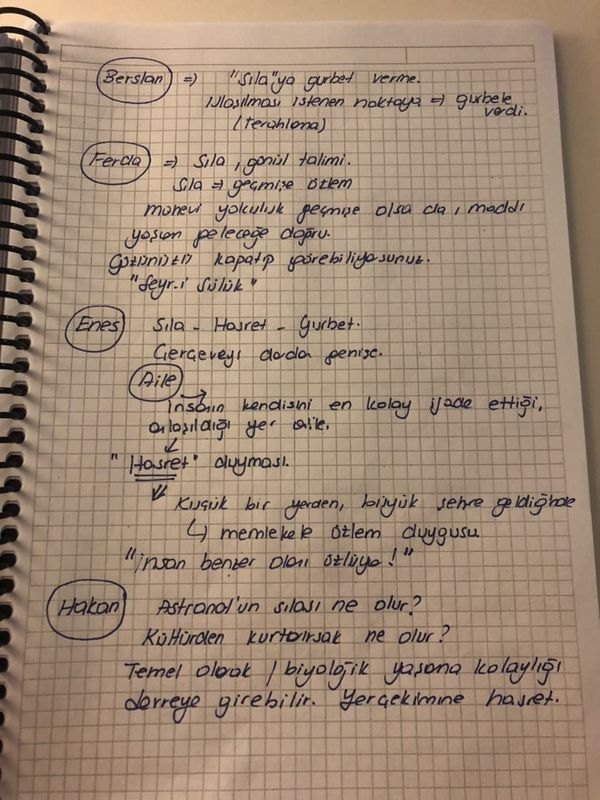 Berslan => "Sıla"ya gurbet verme.
Ulaşılması istenen noktaya => gurbete verdi.
(terahlama)
Ferda => Sıla, gönül talimi.
Sıla => geçmişe özlem
manevi yolculuk geçmişe olsa da, maddi
yaşam geleceğe doğru.
Gözünüzü kapatıp görebiliyosunuz.
"Seyr-i Sülük"
Enes Sıla - Hasret - Gurbet.
Çerçeveyi dardan genişe.
Aile
İnsanın kendisini en kolay ifade ettiği,
anlaşıldığı yer aile.
"Hasret" duyması.
Küçük bir yerden, büyük şehre geldiğinde
↳ memlekete özlem duygusu
"İnsan benzer olanı özlüyo!"
Hakan Astranot'un sılası ne olur?
Kültürden kurtarırsak ne olur?
Temel olarak / biyolojik yaşama kolaylığı
devreye girebilir. Yerçekimine hasret.